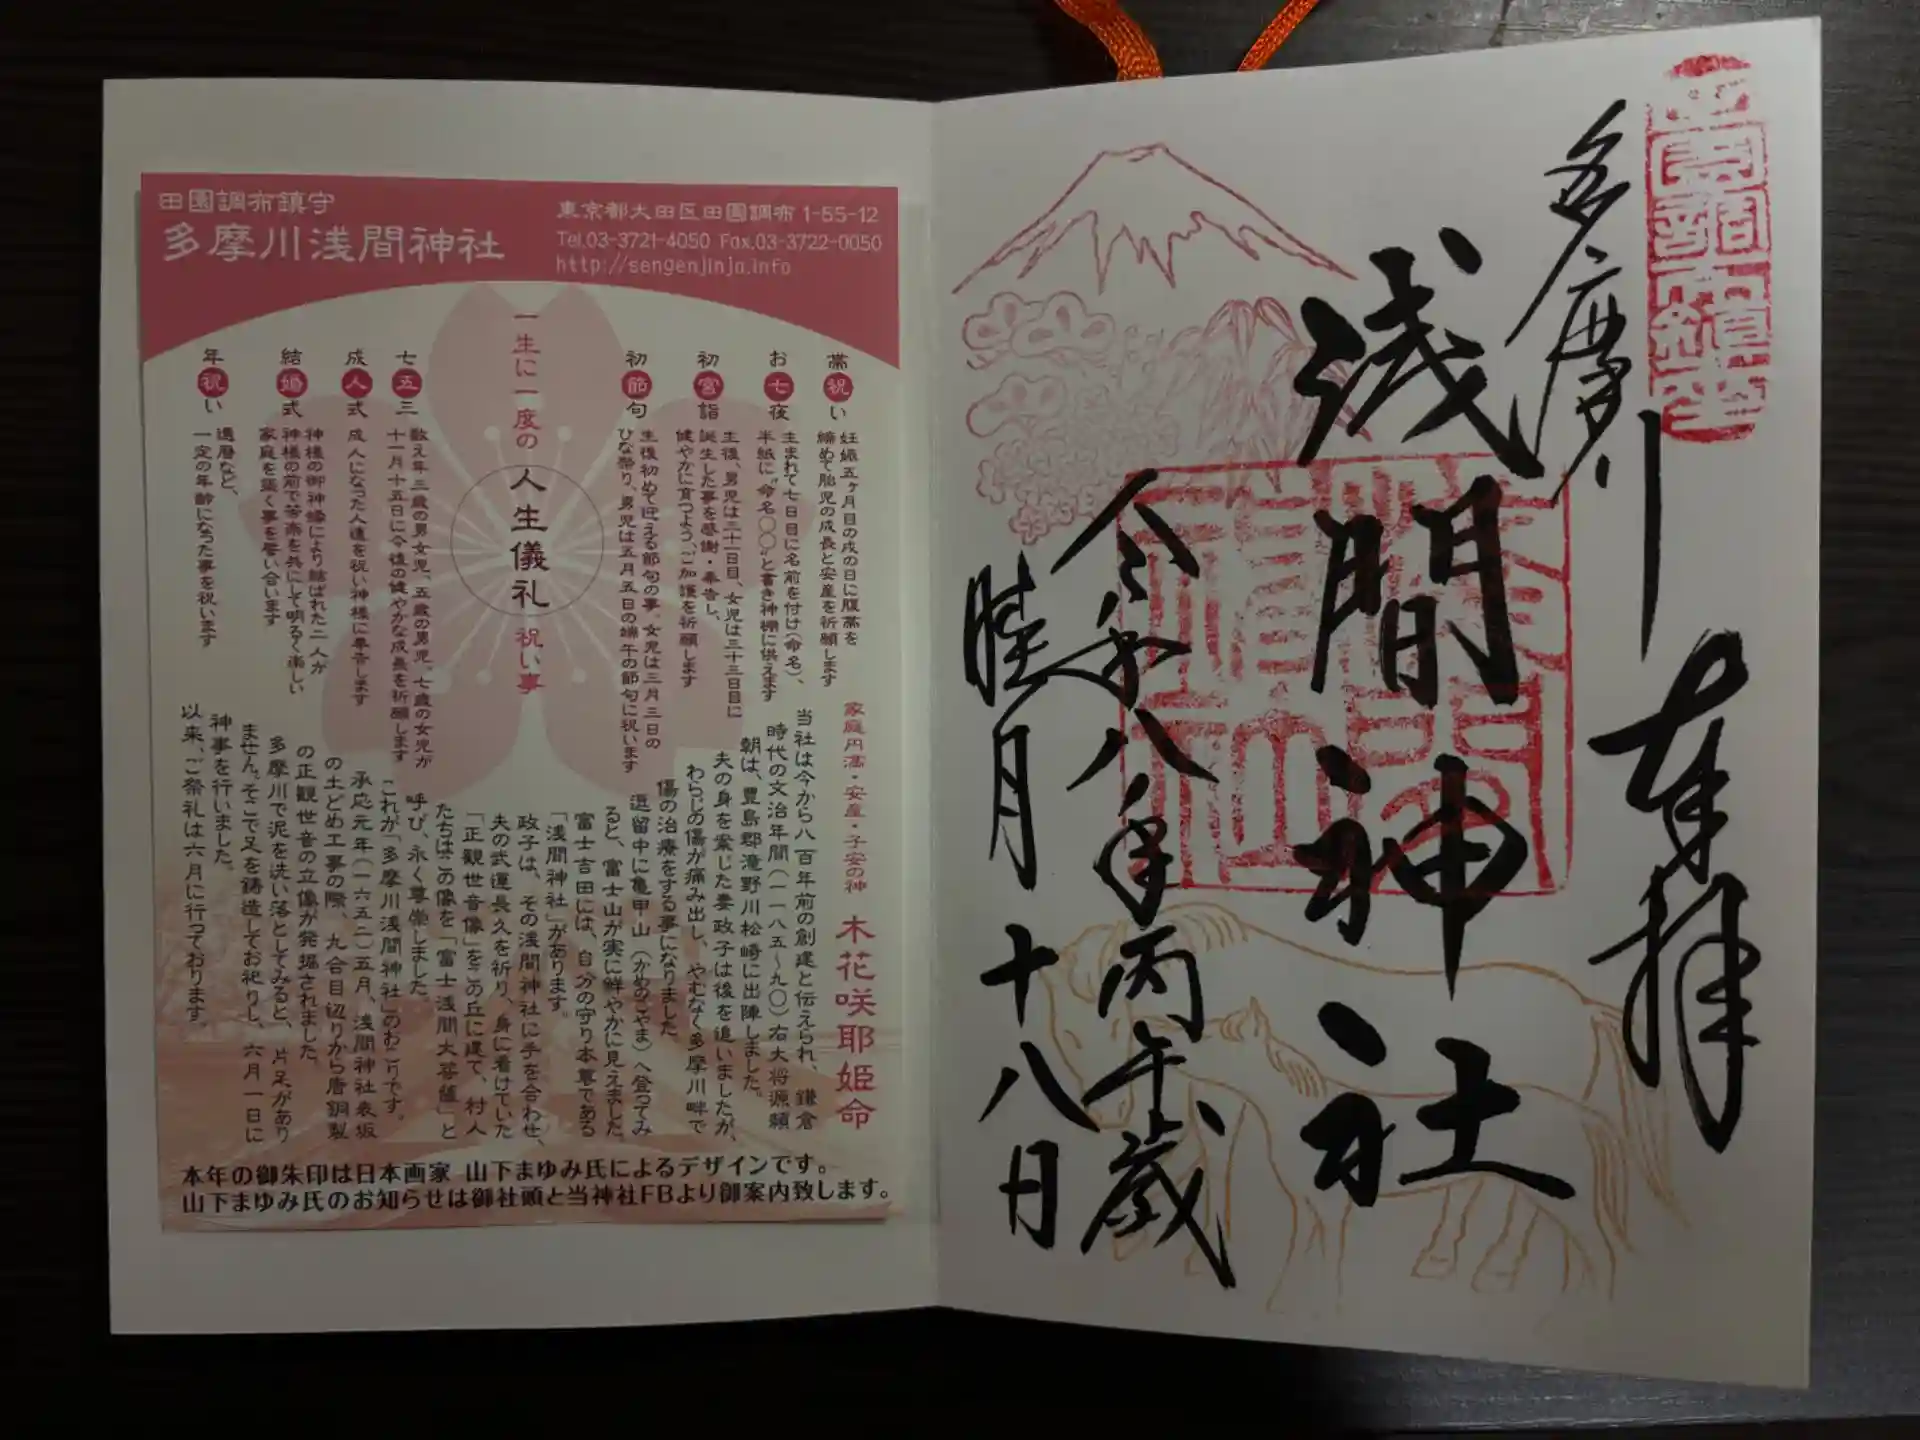 田園調布鎮守
多摩川浅間神社
東京都大田区田園調布 1-55-12
Tel.03-3721-4050 Fax.03-3722-0050
http://sengenjinja.info
一生に一度の 人生儀礼 祝い事
帯祝い
妊娠五ヶ月目の戌の日に腹帯を
締めて胎児の成長と安産を祈願します
お七夜
生まれて七日目に名前を付け(命名)、
半紙に“命名〇〇”と書き神棚に供えます
初宮詣
生後、男児は三十一日目、女児は三十三日目に
誕生した事を感謝・奉告し、
健やかに育つよう、ご加護を祈願します
初節句
生後初めて迎える節句の事。女児は三月三日の
ひな祭り、男児は五月五日の端午の節句に祝います
七五三
数え年三歳の男女児、五歳の男児、七歳の女児が
十一月十五日に今後の健やかな成長を祈願します
成人式
成人になった人達を祝い神様に奉告します
結婚式
神様の御神縁により結ばれた二人が
神様の前で苦楽を共にして明るく楽しい
家庭を築く事を誓い合います
年祝い
還暦など、
一定の年齢になった事を祝います
家庭円満・安産・子安の神 木花咲耶姫命
当社は今から八百年前の創建と伝えられ、鎌倉
時代の文治年間(一一八五〜九〇)右大将源頼
朝は、豊島郡滝野川松崎に出陣しました。
夫の身を案じた妻政子は後を追いましたが、
わらじの傷が痛み出し、やむなく多摩川畔で
傷の治療をする事になりました。
逗留中に亀甲山(かめのこやま)へ登ってみ
ると、富士山が実に鮮やかに見えました。
富士吉田には、自分の守り本尊である
「浅間神社」があります。
政子は、その浅間神社に手を合わせ、
夫の武運長久を祈り、身に着けていた
「正観世音像」をこの丘に建て、村人
たちはこの像を「富士浅間大菩薩」と
呼び、永く尊崇しました。
これが「多摩川浅間神社」のおこりです。
承応元年(一六五二)五月、浅間神社表坂
の土どめ工事の際、九合目辺りから唐銅製
の正観世音の立像が発掘されました。
多摩川で泥を洗い落としてみると、片足があり
ません。そこで足を鋳造してお祀りし、六月一日に
神事を行いました。
以来、ご祭礼は六月に行っております。
本年の御朱印は日本画家 山下まゆみ氏によるデザインです。
山下まゆみ氏のお知らせは御社頭と当神社FBより御案内致します。
奉拝
多摩川
浅間神社
令和八年丙午歳
睦月十八日